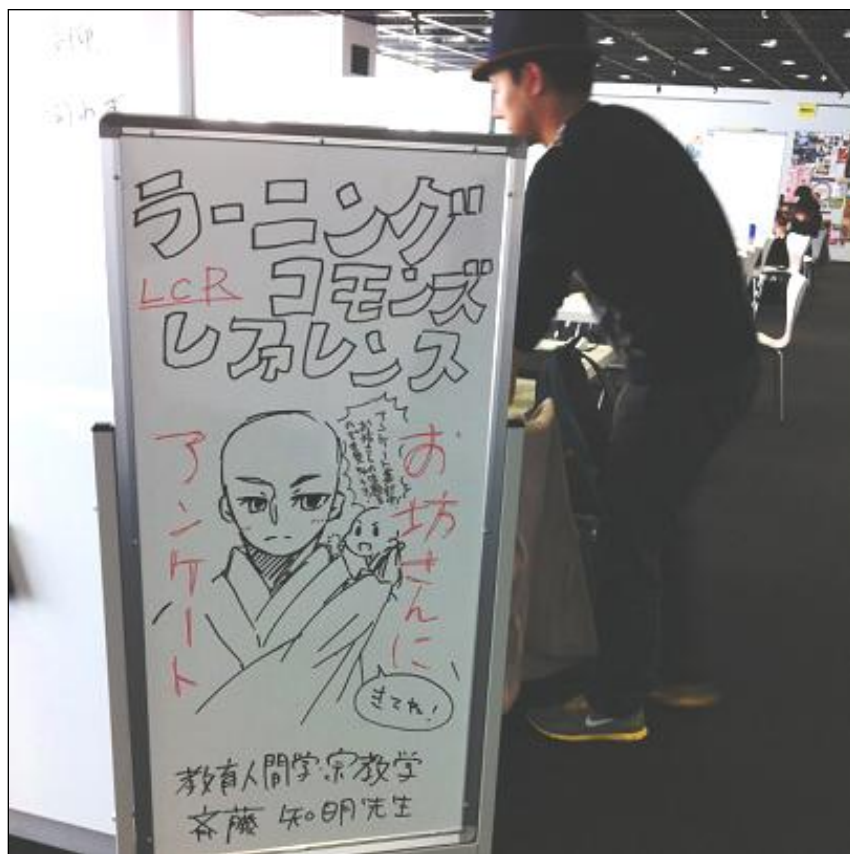 ラーニング
LCR コモンズ
レファレンス
お坊さんに
アンケート
きてね!
教育人間学・宗教学
斉藤 知明先生